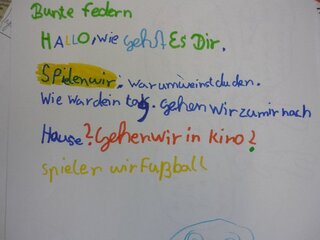 Bunte Federn
HALLO, wie gehst Es Dir.
Spielen wir: warum weinst du den.
Wie war dein tag. gehen wir zu mir nach
Hause? Gehen wir in Kino?
spielen wir Fußball